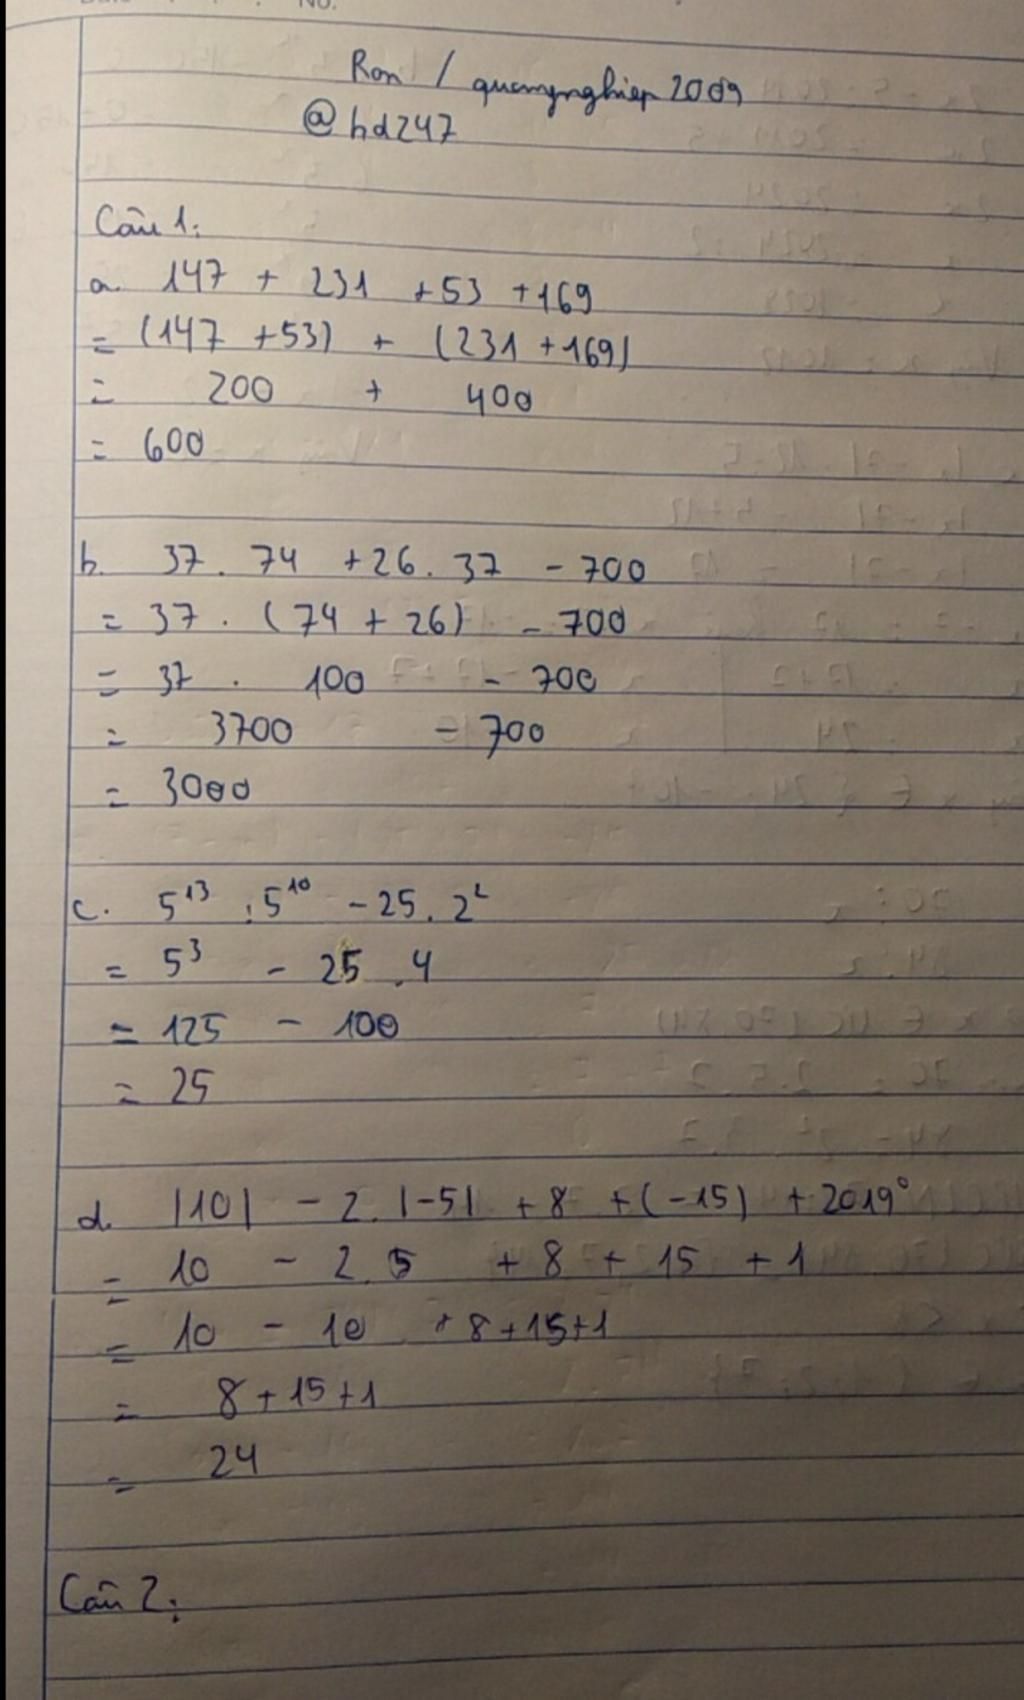 No.
Ron / quangnghiep 2009
@hd247
Câu 1:
a. 147 + 231 + 53 + 169
= (147 + 53) + (231 + 169)
= 200 + 400
= 600
b. 37 . 74 + 26 . 37 - 700
= 37 . (74 + 26) - 700
= 37 . 100 - 700
= 3700 - 700
= 3000
c. 5¹³ : 5¹⁰ - 25 . 2²
= 5³ - 25 . 4
= 125 - 100
= 25
d. |10| - 2. |-5| + 8 + (-15) + 2019⁰
= 10 - 2. 5 + 8 + 15 + 1
= 10 - 10 + 8 + 15 + 1
= 8 + 15 + 1
= 24
Câu 2: